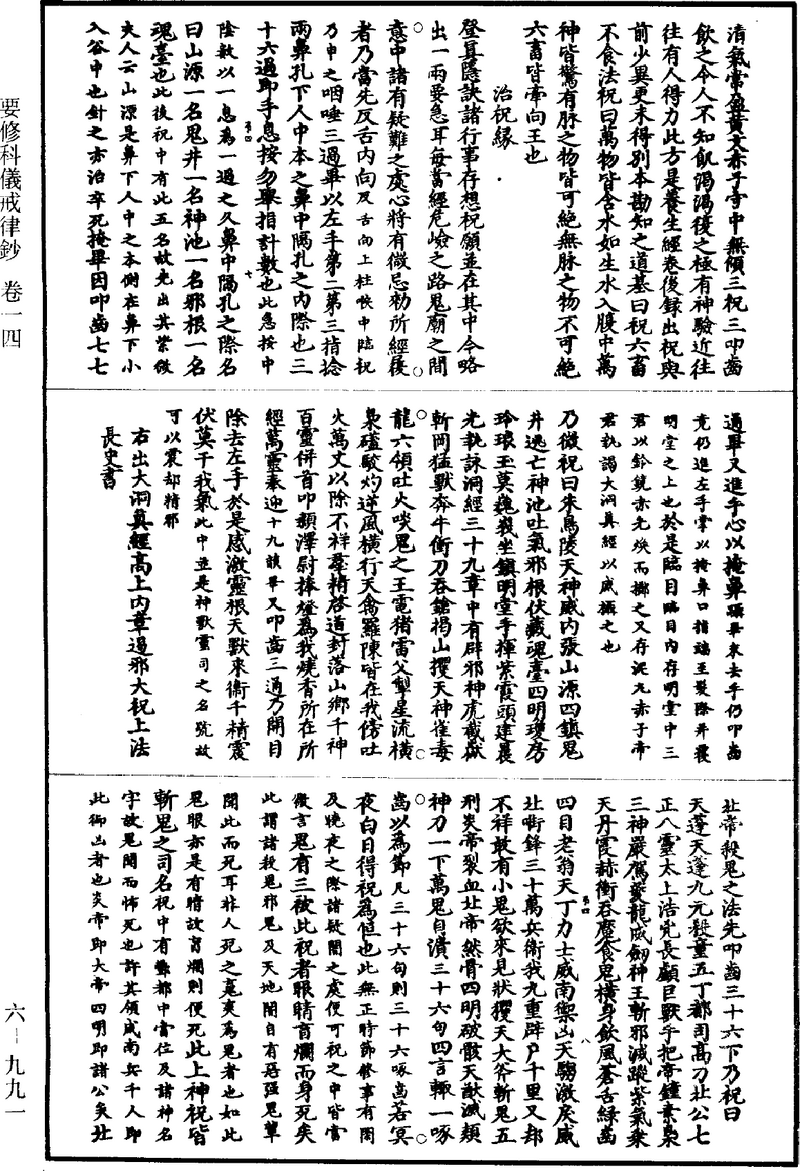 清氣常盈黃文赤子守中無傾三祝三叩齒
飲之令人不知飢渴渴後之極有神驗近往
往有人得力此方是養生經卷後録出祝與
前少異更未得別本勘知之道基曰祝六畜
不食法祝曰萬物皆含水如生水入腹中萬
神皆驚有脉之物皆可絶無脉之物不可絶
六畜皆牽向王也
治祝緣
登真隱訣諸行事存想祝願並在其中今略
出一兩要急耳每當經危嶮之路鬼廟之間
意中諸有疑難之處心將有微忌勑所經履
者乃當先反舌内向及舌向上柱喉中臨祝
乃申之咽唾三過畢以左手第二第三指捻
兩鼻孔下人中本之鼻中隔孔之内際也三
十六過即手急按勿舉指計數也此急按中
陰數以一息為一過之久鼻中隔孔之際名
曰山源一名鬼井一名神池一名邪根一名
魂臺也此後祝中有此五名故先出其紫微
夫人云山源是鼻下人中之本側在鼻下小
入谷中也針之亦治卒死掩畢因叩齒七七
過畢又進手心以掩鼻躡畢未去手仍叩齒
竟仍進左手掌以掩鼻口指端至髮際并覆
明堂之上也於是臨目臨目内存明堂中三
君以鈴鏡赤光煥而擲之又存泥丸赤子帝
君執謁大洞真經以威振之也
乃微祝曰朱鳥陵天神威内張山源四鎮鬼
井逃亡神池吐氣邪根伏藏魂臺四明瓊房
玲琅玉真巍峩坐鎮明堂手揮紫霞頭建晨
光執詠洞經三十九章中有辟邪神虎截嶽
斬岡猛獸奔牛銜刀吞鎗揭山攫天神雀毒
龍六領吐火啖鬼之王電猪雷父掣星流橫
梟磕駮灼逆風横行天禽羅陳皆在我傍吐
火萬丈以除不祥羣精啓道封落山鄉千神
百靈併首叩顙澤尉捧燈為我燒香所在所
經萬靈奉迎十九該畢又叩齒三通乃開目
除去左手於是感激靈根天獸來衞千精震
伏莫干我氣此中並是神獸靈司之名號故
可以震却精邪
右出大洞真經高上内章遏邪大祝上法
長史書
北帝殺鬼之法先叩齒三十六下乃祝曰
天蓬天蓬九元殺童五丁都司高刀北公七
正八靈太上浩兇長顱巨獸手把帝鍾素梟
三神嚴駕夔龍威劒神王斬邪滅蹤紫氣乘
天丹霞赫衝吞魔食鬼橫身飲風蒼舌緑齒
四目老翁天丁力士威南禦凶天騶激戾威
北銜鋒三十萬兵衛我九重辟尸千里又却
不祥敢有小鬼欲來見狀攫天大斧斬鬼五
刑炎帝裂血北帝然骨四明破骸天猷滅類
神刀一下萬鬼自潰三十六句四言輙一啄
齒以為節凡三十六句則三十六啄齒若冥
夜白日得祝為恒也此無正時節修事有閑
及曉夜之際諸疑闇之處便可祝之中皆當
微言鬼有三被此祝者眼睛盲爛而身死矣
此謂諸殺鬼邪鬼及天地間自有惡强鬼輩
聞此而死耳非人死之哀爽為鬼者也如此
鬼眼亦是有睛故盲爛則便死此上神祝皆
斬鬼之司名祝中有酆都中當位及諸神名
字故鬼聞而怖死也許其領威南兵千人即
此御凶者也炎帝即大帝四明即諸公矣北
要修科儀戒律鈔 卷一四
六-九九一